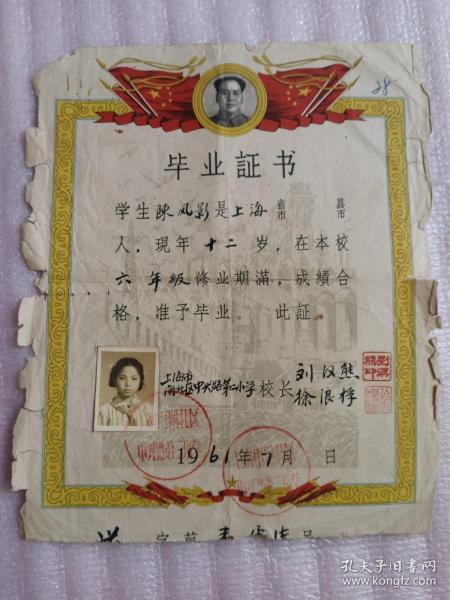 28
毕业証书
学生陳风影是上海省市 县市
人，現年十二岁，在本校
六年級修业期滿，成績合
格，准予毕业。此証。
上海市
闸北区中兴路第二小学 校长 刘汉熊
徐浪桴
1961年7月 日
字第 号
孔夫子旧书网
www.kongfz.com